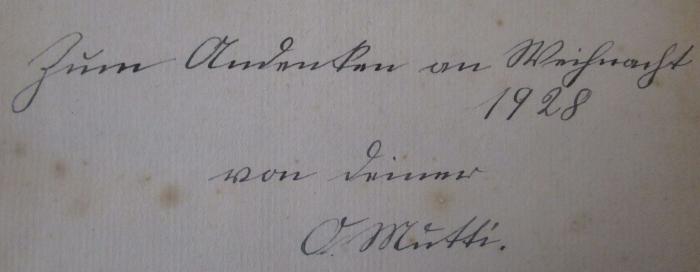 Zum Andenken an Weihnacht
1928
von deiner
O. Mutti.